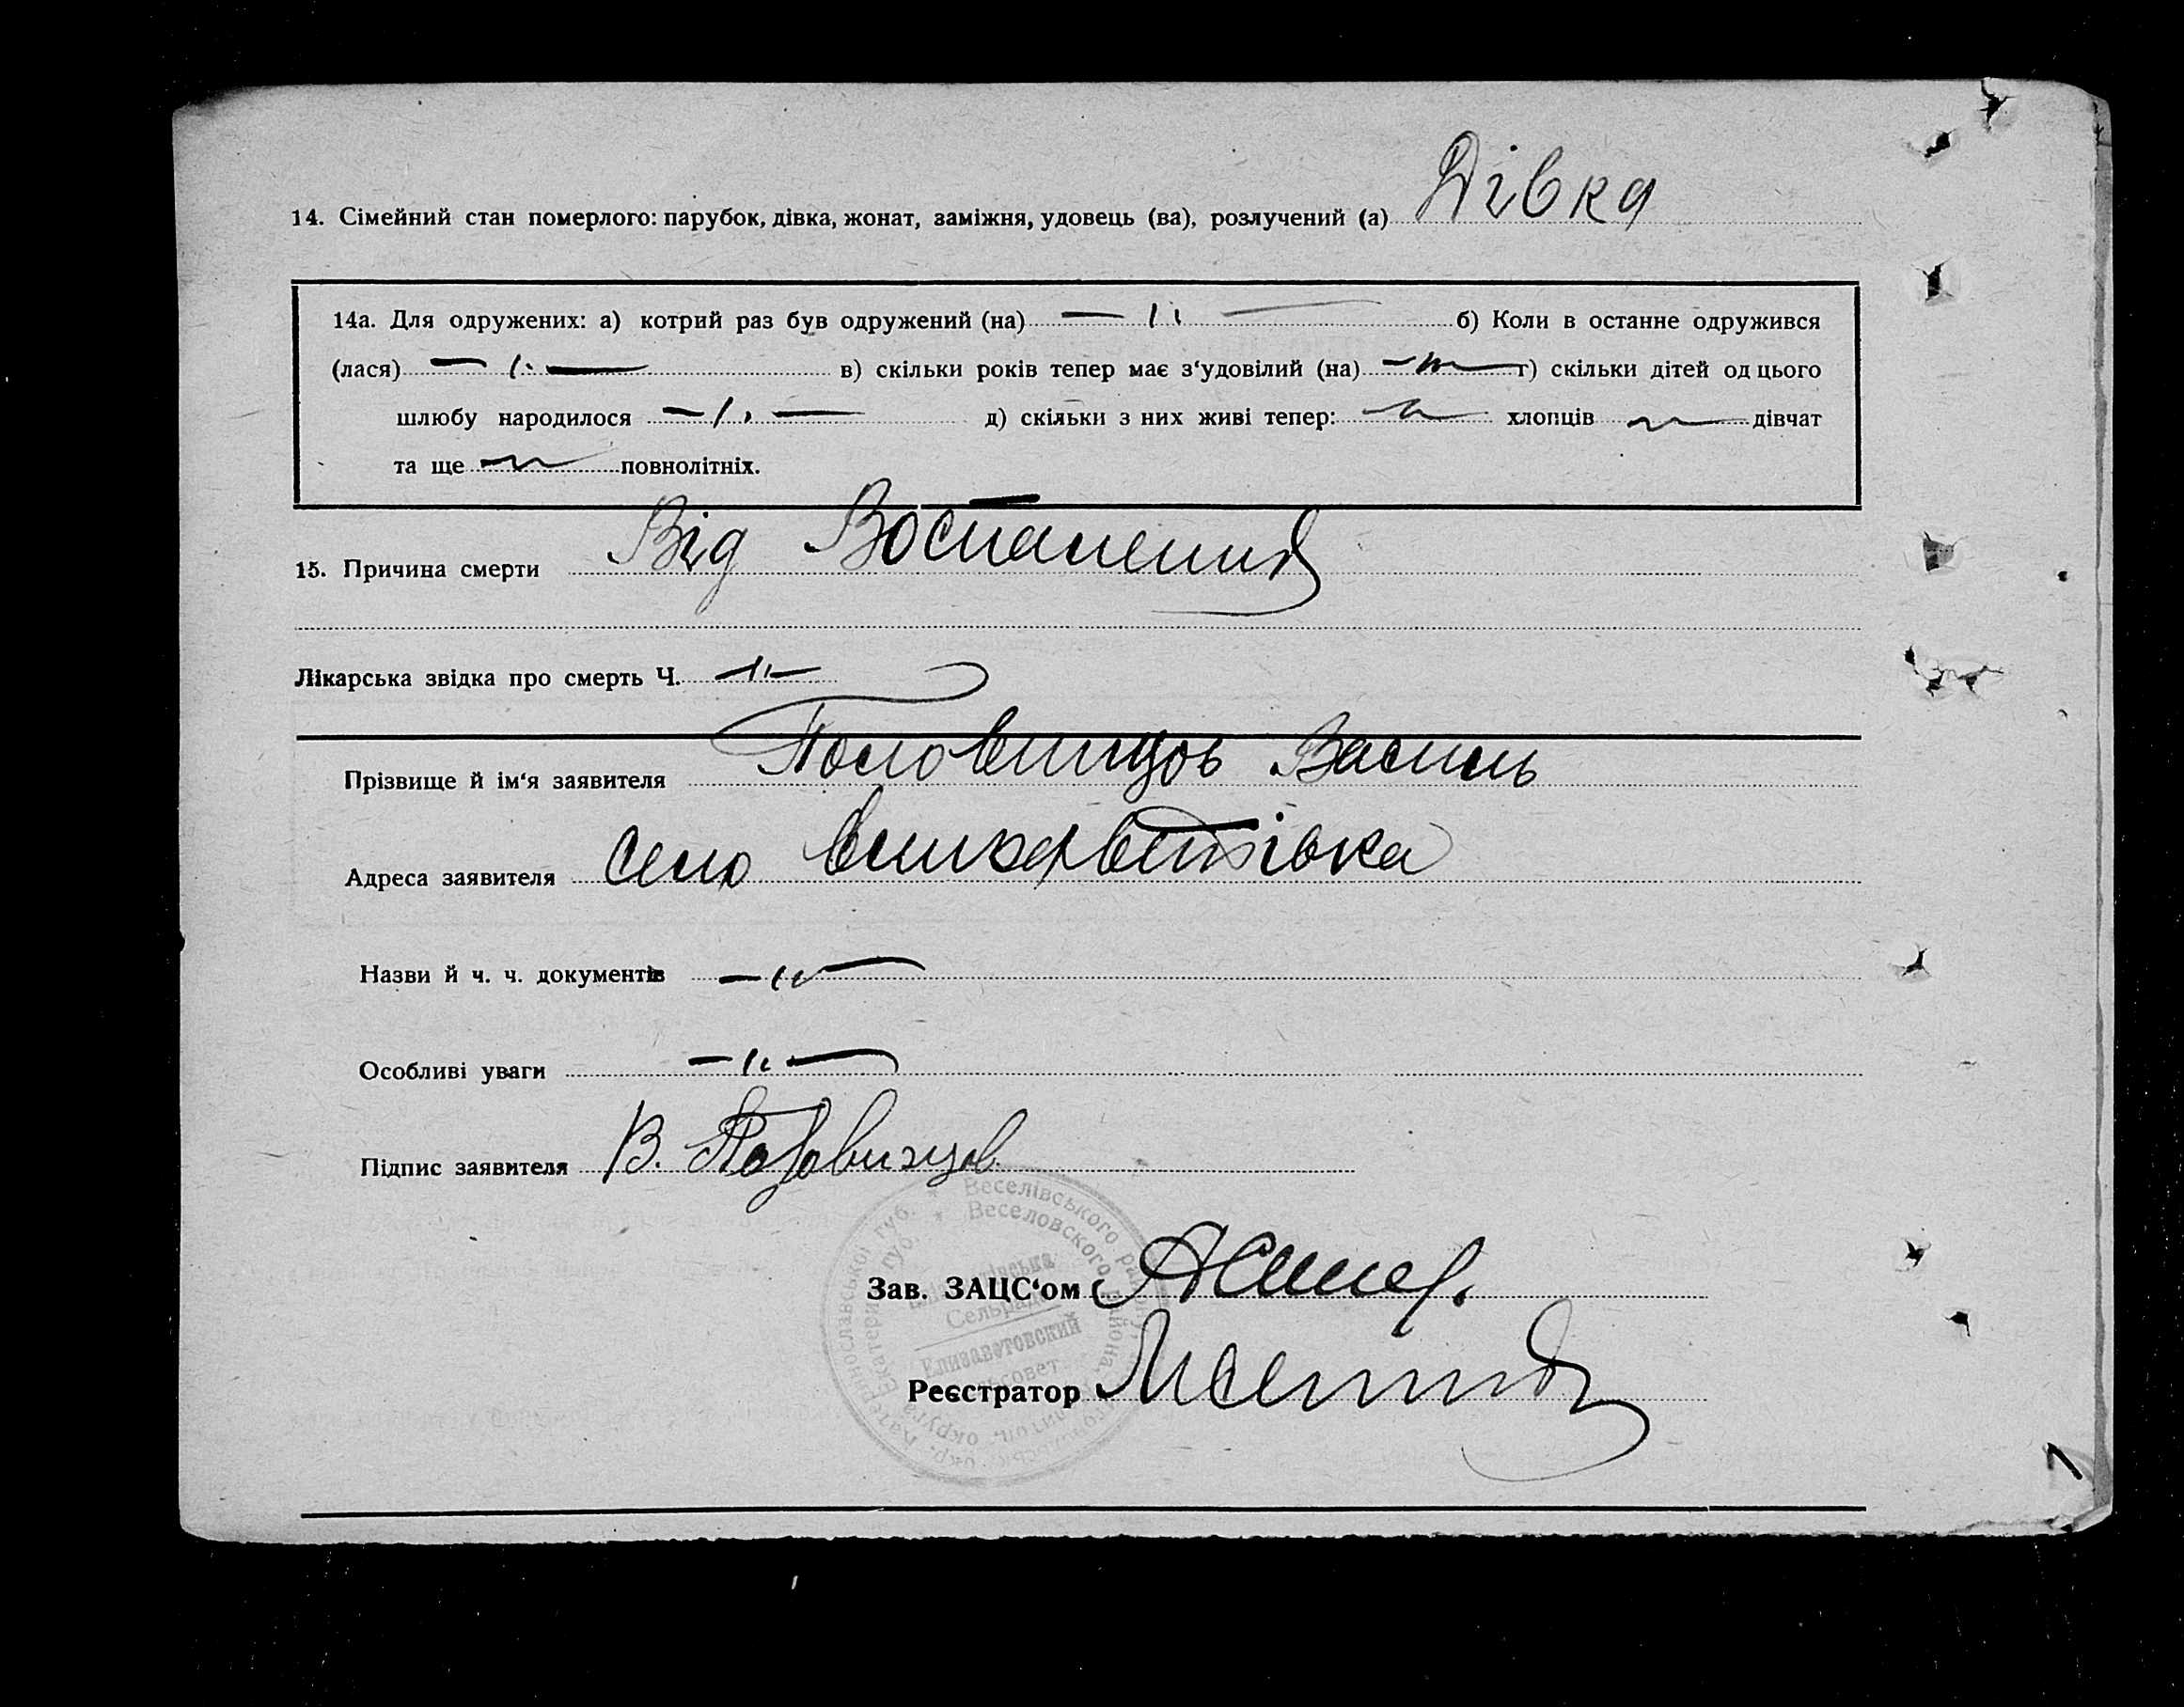 14. Сімейний стан померлого: парубок, дівка, жонат, заміжня, удовець (ва), розлучений (а) Дівка
14а. Для одружених: а) котрий раз був одружений (на) — " — б) Коли в останне одружився
(лася) — " — в) скільки років тепер має з‘удовілий (на) — " — г) скільки дітей од цього
шлюбу народилося — " — д) скільки з них живі тепер: — " — хлопців — " — дівчат
та ще — " — повнолітніх.
15. Причина смерти Від Воспаления
Лікарська звідка про смерть Ч. — " —
Прізвище й ім‘я заявителя Половинцов Василь
Адреса заявителя село Єлизаветівка
Назви й ч. ч. документів — " —
Особливі уваги — " —
Підпис заявителя В. Половинцов.
Веселівського району
Веселовского района
Сельрада
Елизаветовский
Зав. ЗАЦС‘ом
Реєстратор